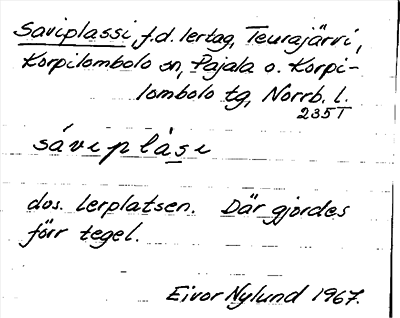 Saviplassi, f.d. lertag, Teurajärvi,
Korpilombolo sn, Pajala o. Korpi-
lombolo tg, Norrb. l.
235T
sáviplàsi
dvs. lerplatsen. Där gjordes
förr tegel.
Eivor Nylund 1967.